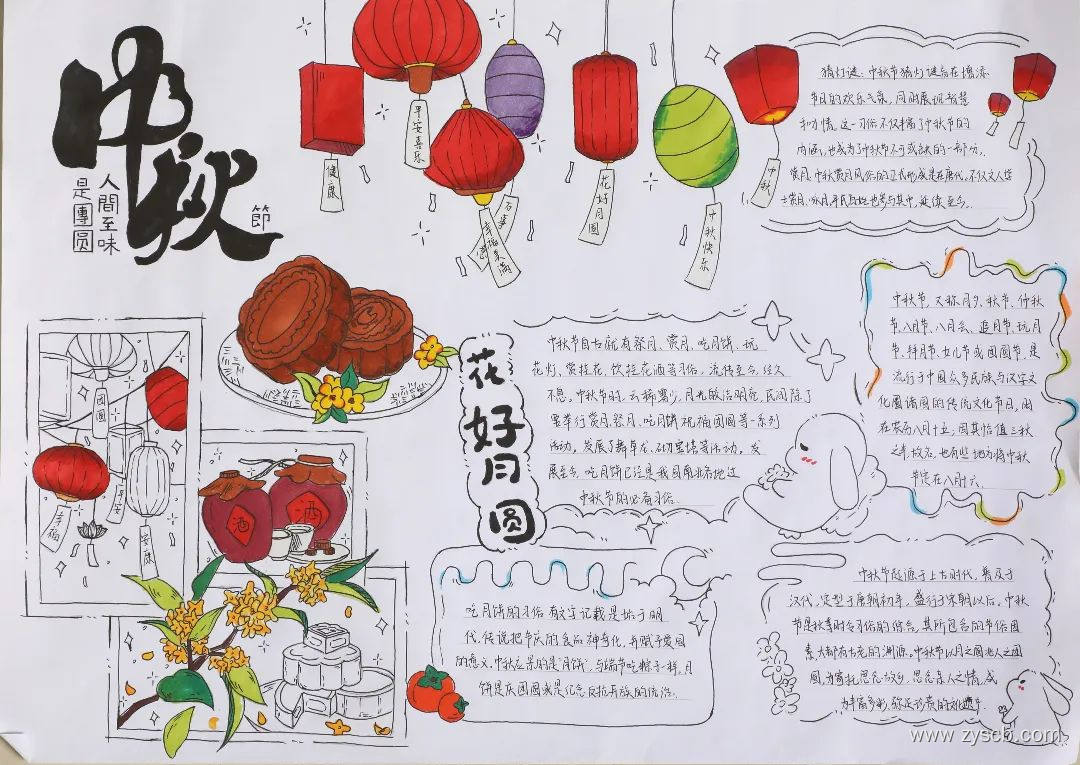 中秋
節
人間至味
是團圆
健康
平安喜乐
万事
幸福美满
花好月圆
中秋快乐
中秋
猜灯谜：中秋节猜灯谜旨在增添
节日的欢乐气氛，同时展现智慧
和才情。这一习俗不仅丰富了中秋节的
内涵，也成为了中秋节不可或缺的一部分。
赏月，中秋赏月风俗的正式形成是在唐代，不仅文人
赏月、咏月，平民百姓也参与其中，延续至今。
中秋节，又称月夕、秋节、仲秋
节、八月节、八月会、追月节、玩月
节、拜月节、女儿节或团圆节，是
流行于中国众多民族与汉字文
化圈诸国的传统文化节日，时
在农历八月十五；因其恰值三秋
之半，故名，也有些地方将中秋
节定在八月十六。
花好月圆
中秋节自古就有祭月、赏月、吃月饼、玩
花灯、赏桂花、饮桂花酒等习俗，流传至今，经久
不息。中秋节时，云稀雾少，月光皎洁明亮，民间除了
要举行赏月、祭月、吃月饼祝福团圆等一系列
活动，发展了舞草龙、砌宝塔等活动，发
展至今，吃月饼已经是我国南北各地过
中秋节的必备习俗。
团圆
平安
幸福
安康
酒
酒
吃月饼的习俗 有文字记载是始于明
代，传说把节庆的食品神奇化，并赋予爱国
的意义，中秋应景的是"月饼"，与端节吃粽子一样，月
饼是庆团圆或是纪念反抗异族的统治。
中秋节起源于上古时代，普及于
汉代，定型于唐朝初年，盛行于宋朝以后。中秋
节是秋季时令习俗的综合，其所包含的节俗因
素大都有古老的渊源。中秋节以月之圆兆人之团
圆，为寄托思念故乡，思念亲人之情，成
为丰富多彩、弥足珍贵的文化遗产。
www.zyscb.com